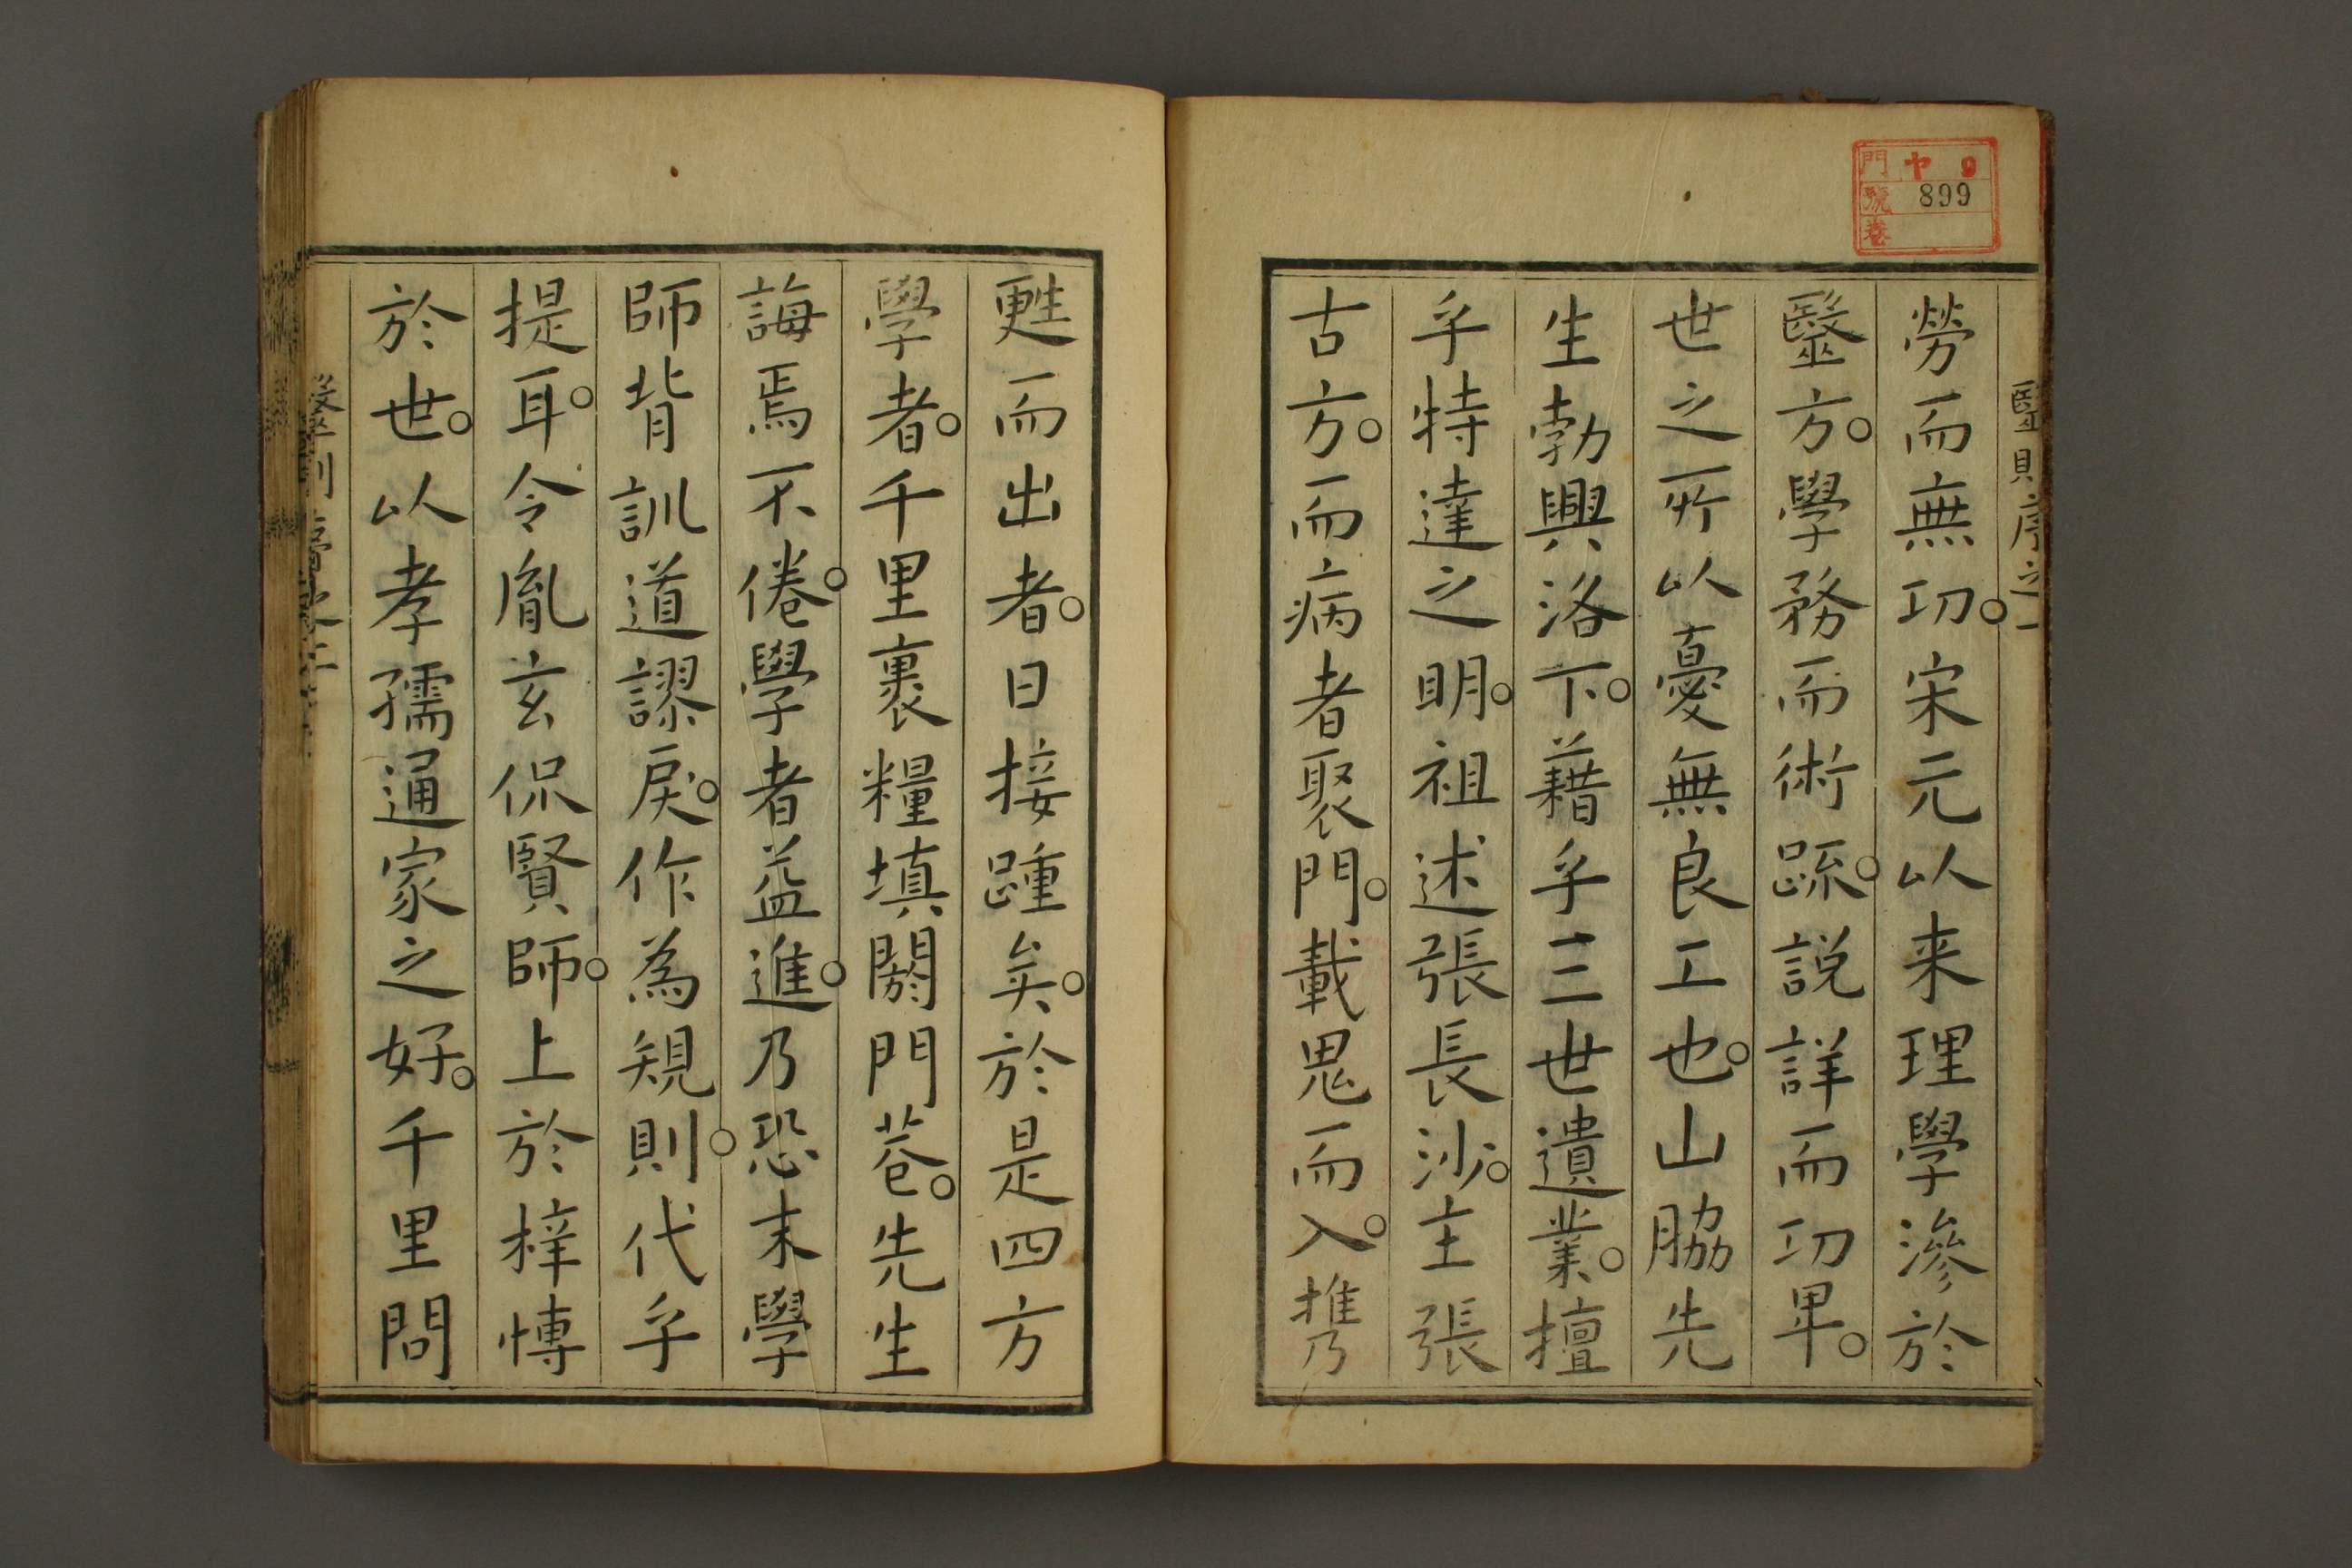 門 ヤ 9
號 899
卷
毉則序之一
勞而無功。宋元以来理學滲於
毉方。學務而術䟽。説詳而功畢。
世之所以憂無良工也。山脇先
生勃興洛下。藉乎三世遺業。擅
乎特達之明。祖述張長沙。主張
古方。而病者聚門。載鬼而入。携
甦而出者。日接踵矣。於是四方
學者。千里裹糧填閼門巷。先生
誨焉不倦。學者益進。乃恐末學
師背訓道謬戾。作為規則。代乎
提耳。令胤玄侃賢師。上於梓愽
於世。以孝孺通家之好。千里問